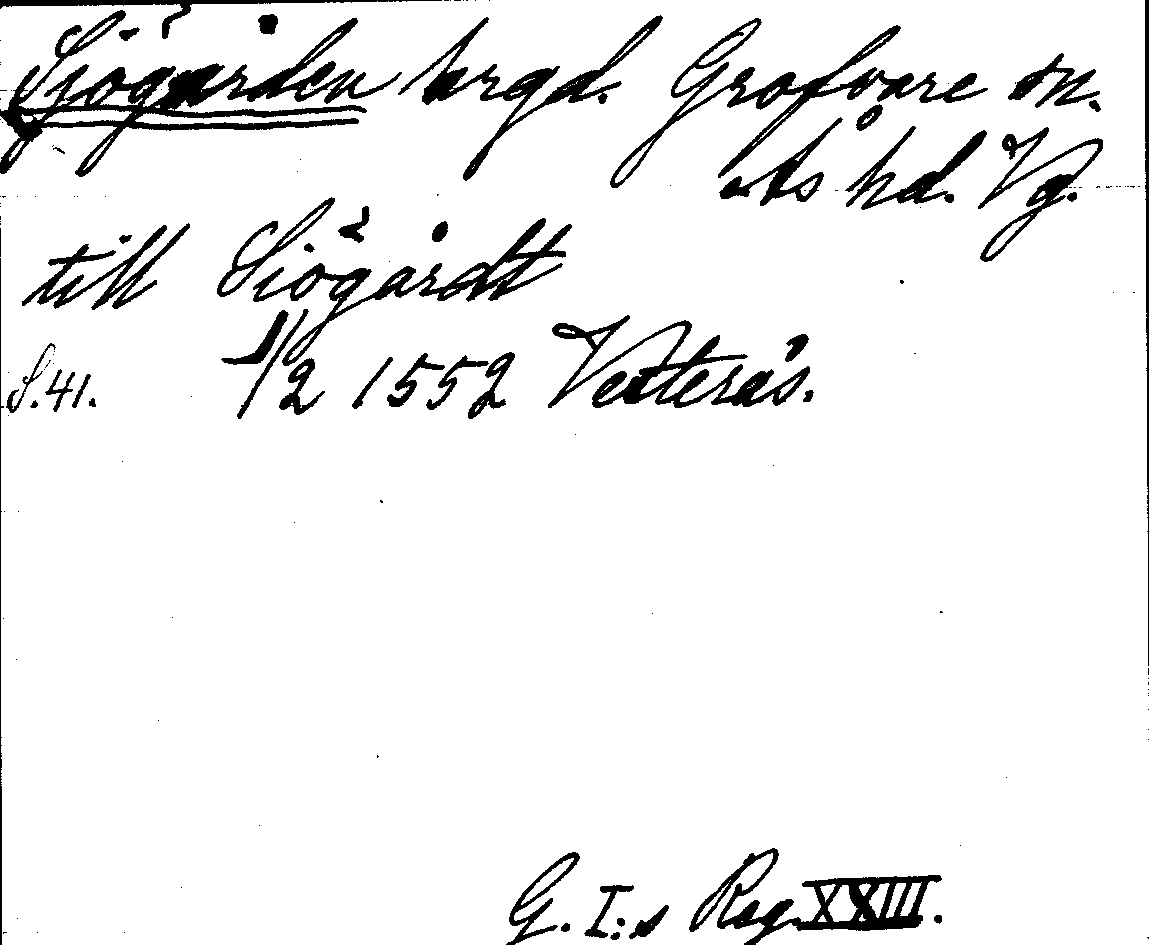 Sjögården hrgd. Grofvare sn.
Ås hd. Vg.
till Siögårdt
S.41. 1/2 1552 Vesterås.
G. I:s Reg. XXIII.